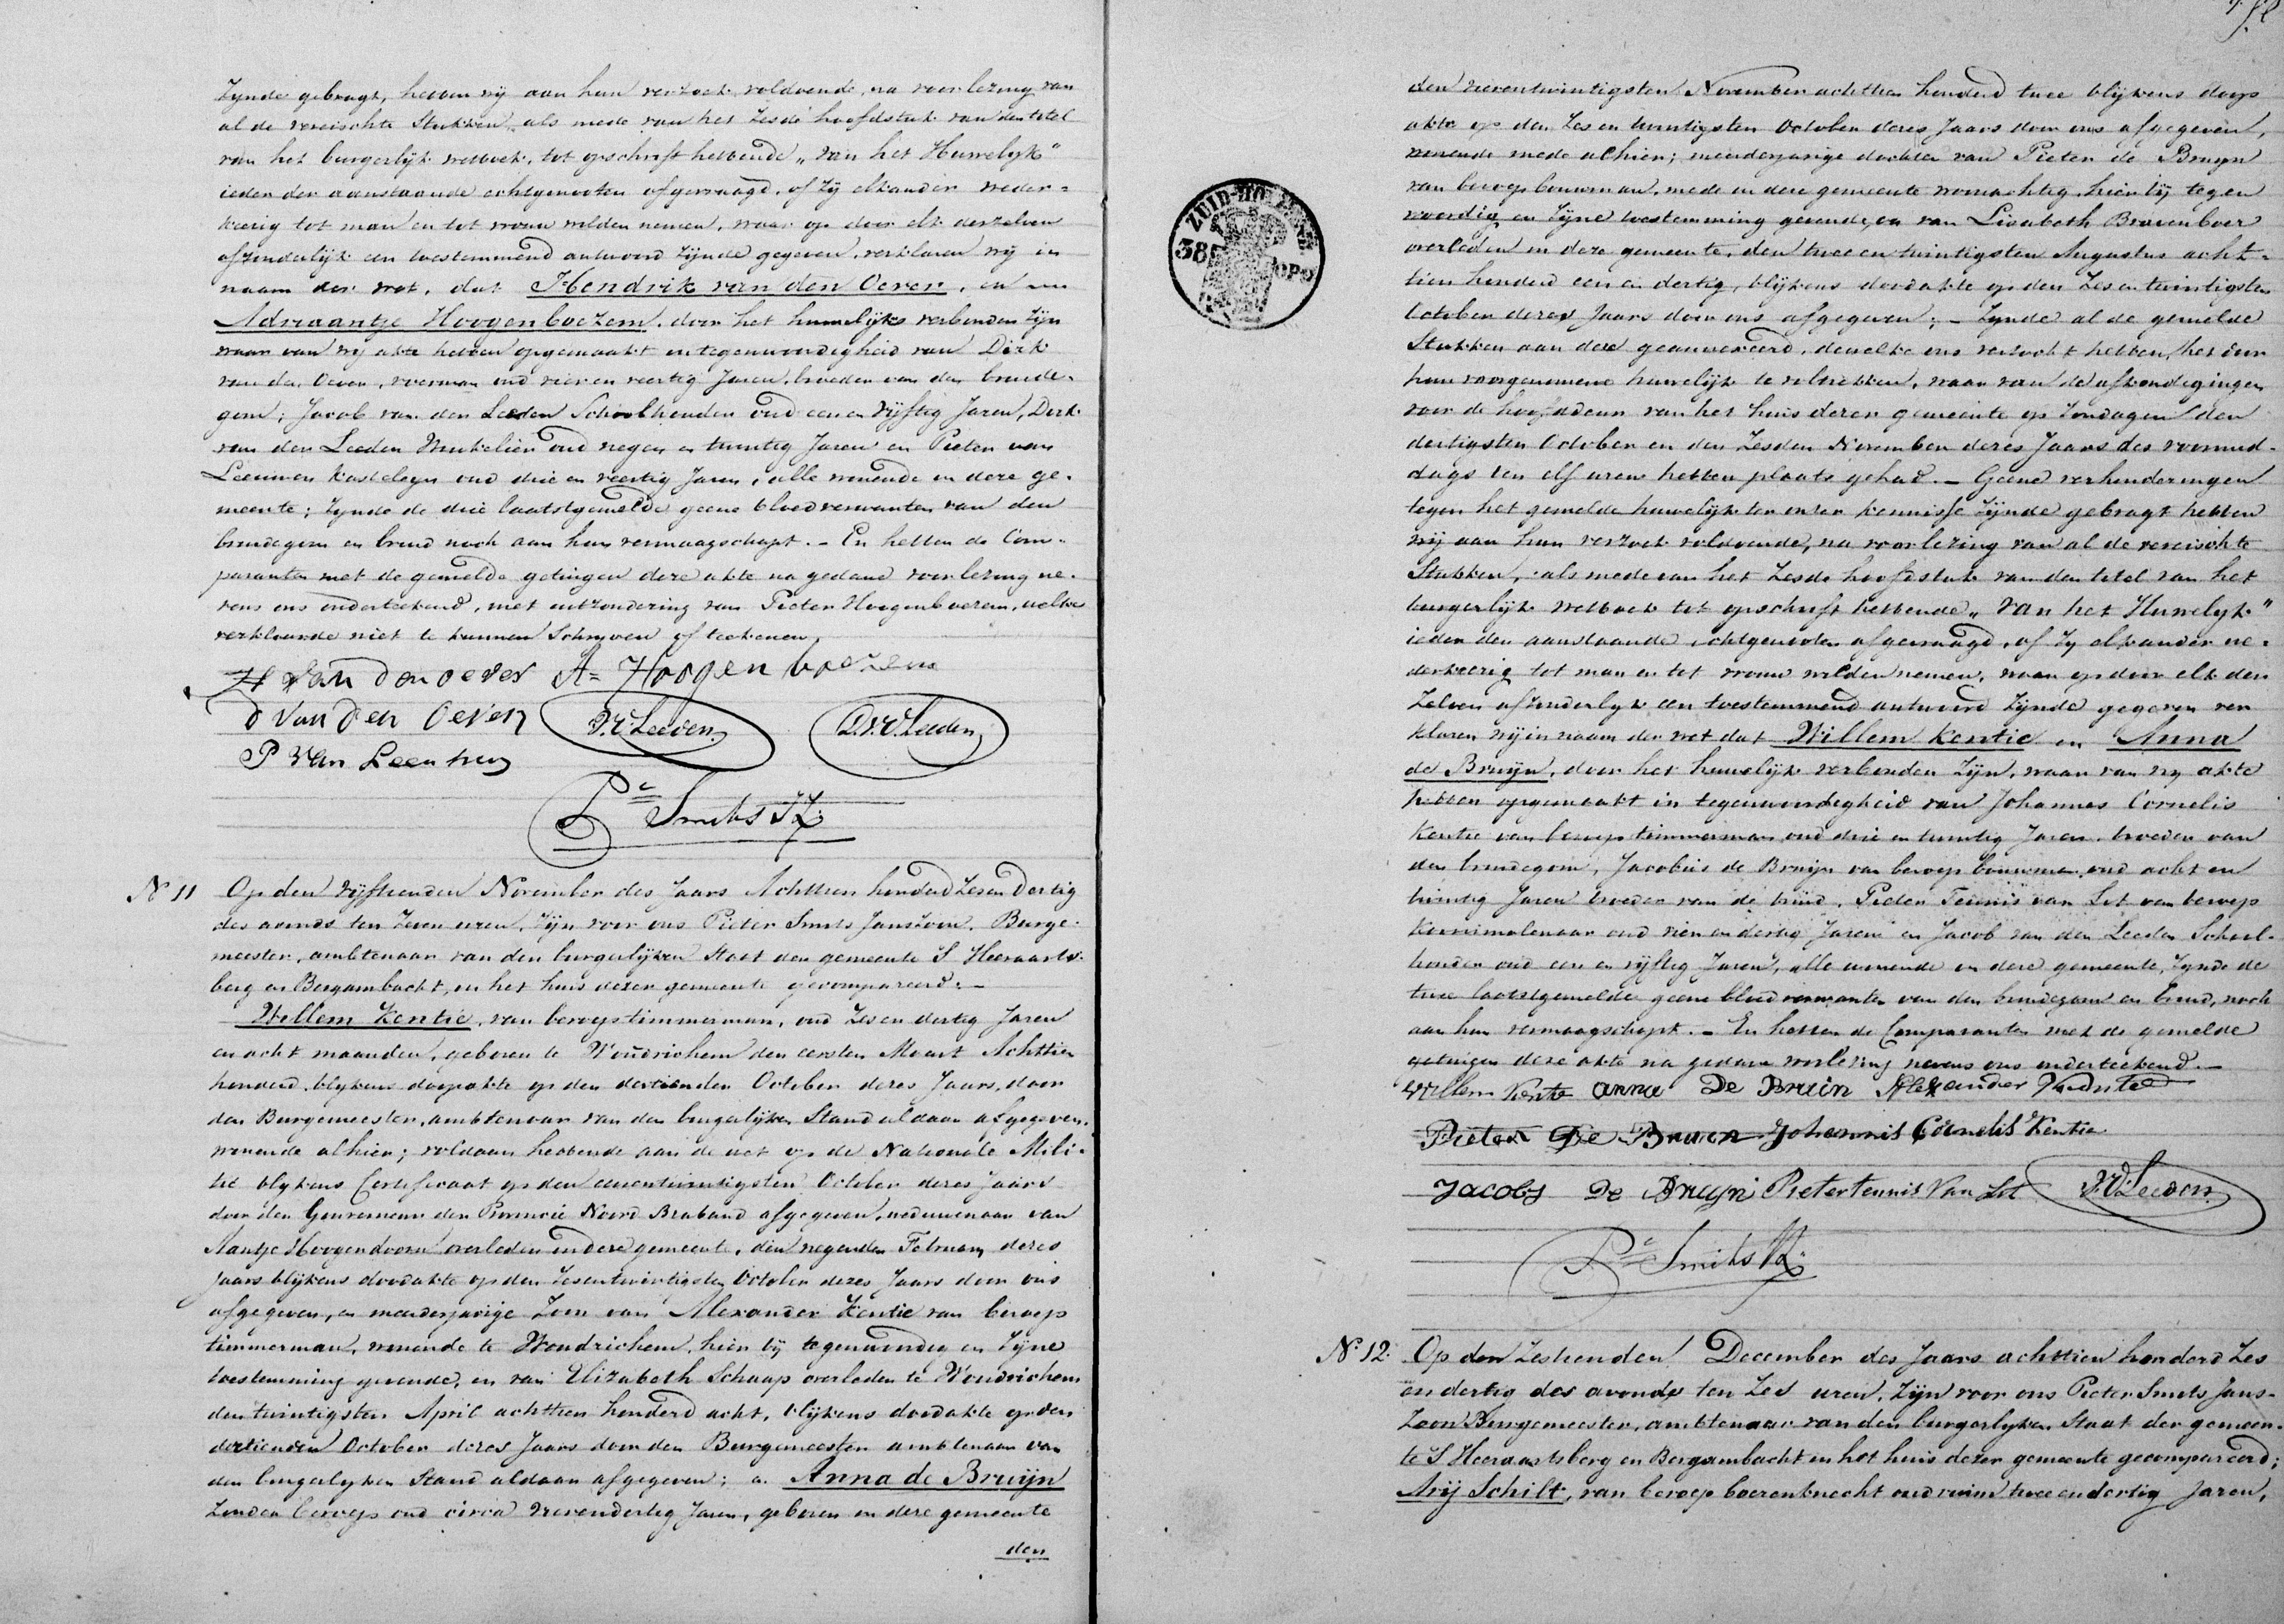 Zynde gebragt, hebben wy aan hun verzoek voldoende, na voorlezing van
al de vereischte Stukken, als mede van het Zesde hoofdstuk van den titel
van het burgerlijk wetboek, tot opschrift hebbende „Van het Huwelyk"
ieder der aanstaande echtgenooten afgevraagd, of Zij elkander weder-
keerig tot man en tot vrouw wilden nemen, waar op door elk derzelven
afzonderlijk een toestemmend antwoord Zijnde gegeven, verklaren wij in
naam der wet, dat Hendrik van den Oever, en
Adriaantje Hoogenboezem, door het huwelijks verbonden Zijn
waar van wy akte hebben opgemaakt in tegenwoordigheid van Dirk
van den Oever, voerman oud vier en veertig Jaren, broeder van den bruide-
gom; Jacob van der Leeden Schoolhouder oud een en vijftig Jaren, Dirk
van der Leeden Winkelier oud negen en twintig Jaren en Pieter van
Leeuwen Kasteleyn oud drie en veertig Jaren, alle wonende in deze ge-
meente; Zynde de drie laatstgemelde geene bloedverwanten van den
bruidegom en bruid noch aan hun vermaagschapt. – En hebben de Com-
paranten met de gemelde getuigen deze akte na gedane voorlezing ne-
vens ons onderteekend, met uitzondering van Pieter Hoogenboezem, welke
verklaarde niet te kunnen Schryven of teekenen.
H van den oever A= Hoogenboezem
d van den Oever J.V.Leeden D.v.d.Leeden
P van Leeuwen
Pr Smits JZ.
N 11 Op den vijftienden November des Jaars Achttien honderd Zes en Dertig
des avonds ten Zeven uren, Zijn voor ons Pieter Smits Janszoon, Burge-
meester, ambtenaar van den burgerlijken Staat der gemeente S Heeraarts-
berg en Bergambacht, in het huis dezer gemeente gecompareerd: –
Willem Kentie, van beroep timmerman, oud Zes en dertig Jaren
en acht maanden, geboren te Woudrichem den eersten Maart Achttien
honderd, blykens doopakte op den dertienden October dezes Jaars, door
den Burgemeester, ambtenaar van den burgerlijken Stand aldaar afgegeven,
wonende alhier; voldaan hebbende aan de wet op de Nationale Mili-
tie blykens Certificaat op den eenentwintigsten October dezes Jaars
door den Gouverneur der Provincie Noord Braband afgegeven, weduwenaar van
Aantje Hoogendoorn overleden in deze gemeente, den negenden February dezes
Jaars blijkens doodakte op den Zesentwintigsten October dezes Jaars door ons
afgegeven, en meerderjarige Zoon van Alexander Kentie van beroep
timmerman, wonende te Woudrichem, hier bij tegenwoordig en Zijne
toestemming gevende, en van Elizabeth Schaap overleden te Woudrichem
den twintigsten April achttien honderd acht, blijkens doodakte op den
dertienden October dezes Jaars door den Burgemeester ambtenaar van
den burgerlyken Stand aldaar afgegeven; en Anna de Bruijn
Zonder beroep oud circa vierendertig Jaren, geboren in deze gemeente
den
den vierentwintigsten November achttien honderd twee blijkens doop
akte op den Zes en twintigsten October dezes Jaars door ons afgegeven,
wonende mede alhier; meerderjarige dochter van Pieter de Bruyn
van beroep bouwman, mede in deze gemeente woonachtig, hier bij tegen
woordig en Zijne toestemming gevende, en van Lisabeth Bravenboer
overleden in deze gemeente, den twee en twintigsten Augustus acht-
tien honderd een en dertig, blijkens doodakte op den Zes en twintigsten
October dezes Jaars door ons afgegeven; – Zynde al de gemelde
Stukken aan deze geannexeerd, dewelke ons verzocht hebben, het door
hun voorgenomene huwelijk te voltrekken, waar van de afkondigingen
voor de hoofddeur van het huis dezer gemeente op Zondagen den
dertigsten October en den Zesden November dezes Jaars des voormid-
dags ten elf uren hebben plaats gehad. – Geene verhinderingen
tegen het gemelde huwelijk ter onzer kennisse Zijnde gebragt hebben
wij aan hun verzoek voldoende, na voorlezing van al de vereischte
Stukken, als mede van het Zesde hoofdstuk van den titel van het
burgerlijk wetboek tot opschrift hebbende „Van het Huwelyk"
ieder der aanstaande echtgenooten afgevraagd, of Zy elkander we-
derkeerig tot man en tot vrouw wilden nemen, waar op door elk der
Zelven afzonderlyk een toestemmend antwoord Zijnde gegeven ver
klaren wij in naam der wet dat Willem Kentie en Anna
de Bruijn, door het huwelijk verbonden Zijn, waar van wy akte
hebben opgemaakt in tegenwoordigheid van Johannes Cornelis
Kentie van beroep timmerman oud drie en twintig Jaren broeder van
den bruidegom, Jacobus de Bruijn van beroep bouwman oud acht en
twintig Jaren broeder van de bruid, Pieter Teunis van Lit van beroep
Korenmolenaar oud vier en dertig Jaren en Jacob van der Leeden School-
houder oud een en vijftig Jaren, alle wonende in deze gemeente, Zynde de
twee laatstgemelde geene bloedverwanten van den bruidegom en bruid, noch
aan hun vermaagschapt. – En hebben de Comparanten met de gemelde
getuigen deze akte na gedane voorlezing nevens ons onderteekend. –
Willem Kentie anna De Bruin Alexander Kentie
Pieter De Bruin Johannis Cornelis Kentie
Jacobs De Bruijn Pieter teunis Van Lit J.V.Leeden
Pr Smits JZ.
N. 12. Op den Zestienden December des Jaars achttien honderd Zes
en dertig des avonds ten Zes uren, Zijn voor ons Pieter Smits Jans-
Zoon Burgemeester, ambtenaar van den burgerlyken Staat der gemeen-
te S Heeraartsberg en Bergambacht in het huis dezer gemeente gecompareerd;
Arij Schilt, van beroep boerenknecht oud ruim twee en dertig Jaren,
ZUID-HOLLAND
38